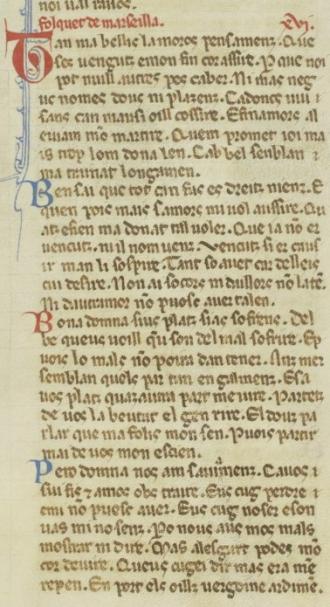 folquet de marseilla. XVI.
Tan mabellis lamoros pensamenz. Que
ses uengutz emon fin cor assire. P que noi
pot nuill autres pes caber. Ni mas neg
us nomes dous ni plazenz. Cadonc uiu
sans can mausi oill cossire. E finamors al
euiam mo martire. Quem promet ioi ma
is trop lom dona len. Cab bel senblan
ma trainat longamen.
Ben sai que tot can faz es dreitz nienz. E
quen pois mais samors mi uol aussire. Qu
at escien ma donat tal uoler. Que ia no er
uencutz. ni il nom uenz. Vencutz si er caus
ir man li sospire. Tant soauet car de lleis
cui desire. Non ai socors ni daillors no laten.
Ni dautramor no puosc auer talen.
Bona domna siuz platz siaz sofrenz. Del
be queus uoill qu son del mal sofrire. E p
uois lo mals no poira dan tener. Anz mer
semblan quels par tam engalmenz. E sa
uos platz quazautra part me uire. Partetz
de uos la beutat el gen rire. El douz pa
rlar que ma folis mon sen. Puois partir
mai de uos mon escien.
Pero domna nos am sauiamenz. Cauos
sui fis z amors obs traire. Eus cug perdre
emi no puesc auer. Eus cug noser eson
uas mi nosenz. Po nous aus mos mals
mostrar ni dire. Mas alesgart podes mo
cor deuire. Queus cugei dir mas era me
repen. En port els oillz uergoine ardime.